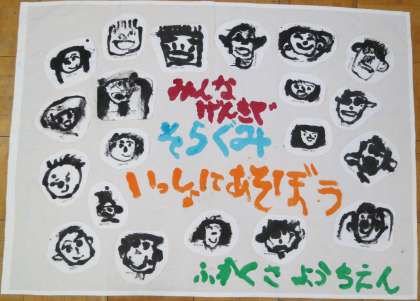 みんな
げんきで
そらぐみ
いっしょにあそぼう
ふかくさ ようちえん